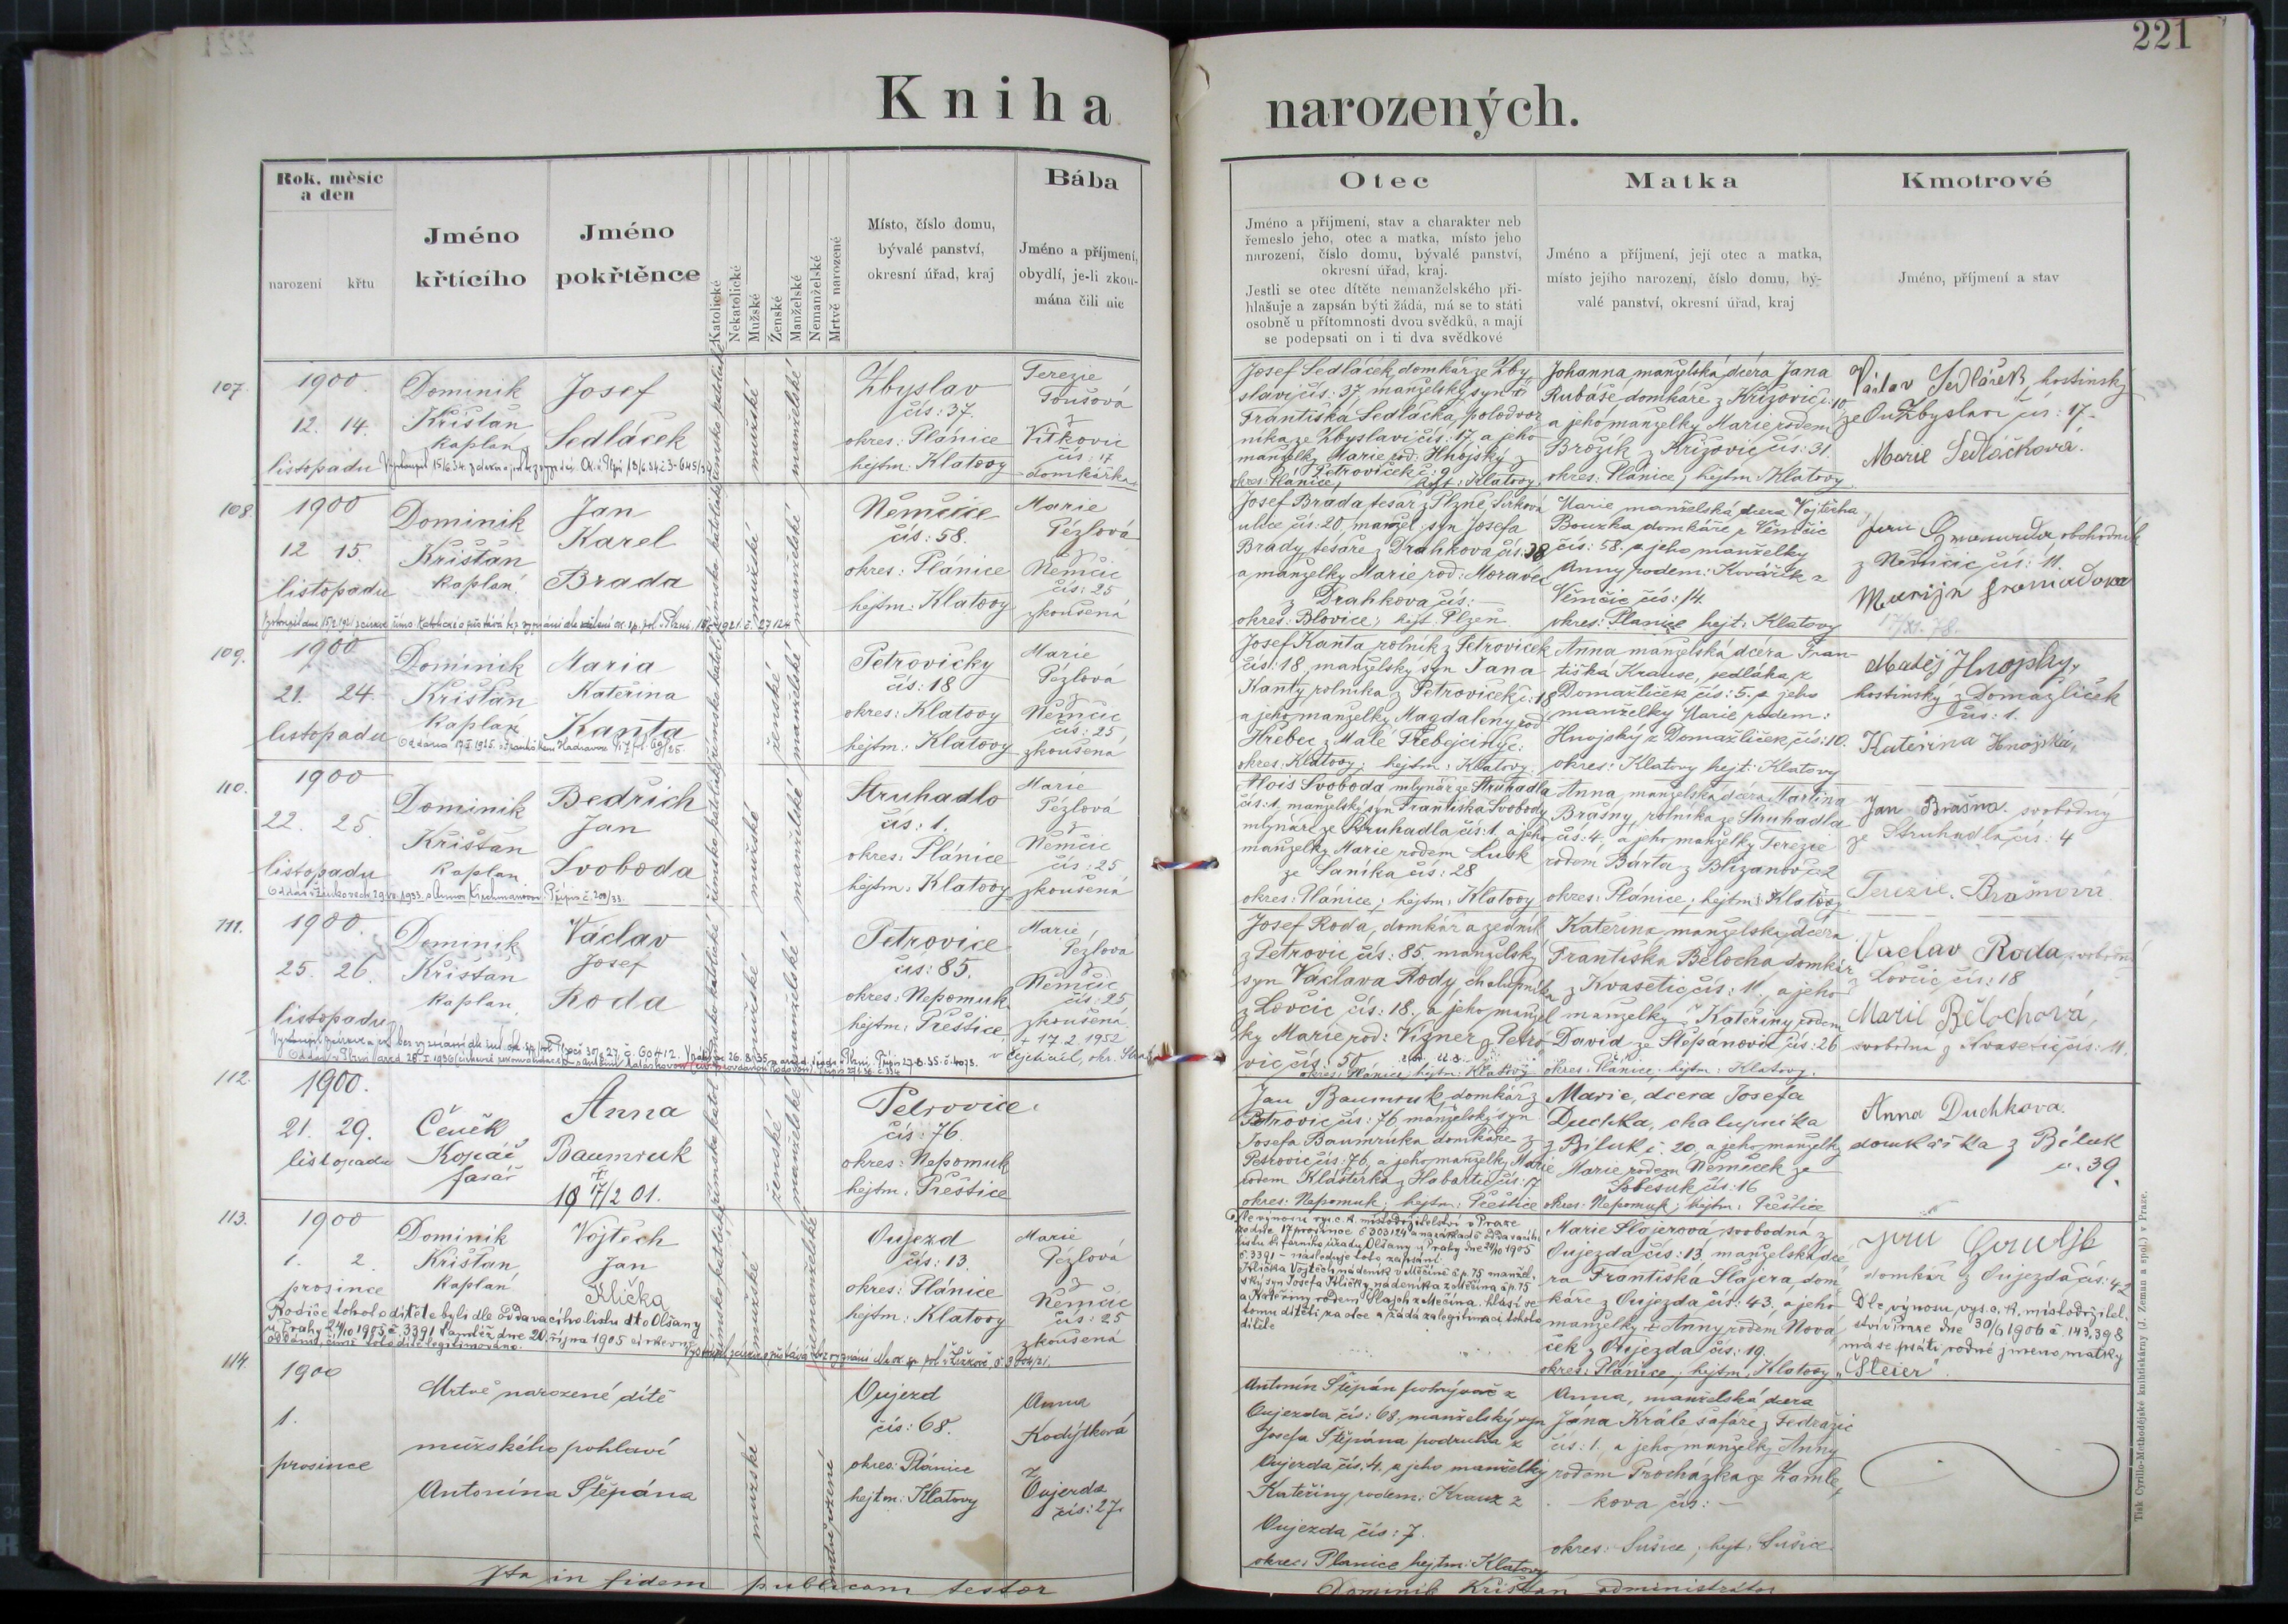 221
Kniha
narozených.
Rok, měsíc
a den
narození
křtu
Jméno
křtícího
Jméno
pokřtěnce
Katolické
Nekatolické
Mužské
Ženské
Manželské
Nemanželské
Mrtvě narozené
Místo, číslo domu,
bývalé panství,
okresní úřad, kraj
Bába
Jméno a příjmení,
obydlí, je-li zkou-
mána čili nic
Otec
Jméno a přijmení, stav a charakter neb
řemeslo jeho, otec a matka, místo jeho
narození, číslo domu, bývalé panství,
okresní úřad, kraj.
Jestli se otec dítěte nemanželského při-
hlašuje a zapsán býti žádá, má se to státi
osobně u přítomnosti dvou svědků, a mají
se podepsati on i ti dva svědkové
Matka
Jméno a příjmení, její otec a matka,
místo jejího narození, číslo domu, bý-
valé panství, okresní úřad, kraj
Kmotrové
Jméno, příjmení a stav
107.
1900.
12. 14.
listopadu
Dominik
Křišťan
kaplan
Josef
Sedláček
mužské
manželské
Zbyslav
čís: 37.
okres: Plánice
hejtm: Klatovy
Terezie
Toušová
z
Vítkovic
čís: 17
domkářka
Josef Sedláček, domkář ze Zby
slavi čís: 37, manželský syn
Františka Sedláčka, polodvor
níka ze Zbyslavi čís: 17, a jeho
manželky Marie rod: Hnojský z
Petroviček č: 9.
okres: Plánice, hejt: Klatovy
Johanna, manželská dcera Jana
Rubáše domkáře z Křižovic č: 10
a jeho manželky Marie rodem
Brožík z Křižovic čís: 31.
okres: Plánice, hejtm: Klatovy
Václav Sedláček, hostinský
ze Zbyslavi čís: 17.
Marie Sedláčková.
108.
1900
12 15.
listopadu
Dominik
Křišťan
kaplan
Jan
Karel
Brada
mužské
manželské
Němčice
čís: 58.
okres: Plánice
hejtm: Klatovy
Marie
Pézlová
z
Němčic
čís: 25
zkoušená
Josef Brada tesař z Plzně, Sirková
ulice čís: 20, manžel. syn Josefa
Brady tesaře z Drahkova čís: 38
a manželky Marie rod: Moravec
z Drahkova čís: —
okres: Blovice, hejt. Plzeň
Marie manželská dcera Vojtěcha
Bouzka domkáře z Němčic
čís: 58. a jeho manželky
Anny rodem: Kovářík z
Němčic čís: 14.
okres: Plánice hejt: Klatovy
obchodník
z Němčic čís: 11.
17/XI. 78.
109.
1900
21. 24.
listopadu
Dominik
Křišťan
kaplan
Maria
Kateřina
Kanta
ženské
manželské
Petrovičky
čís: 18
okres: Klatovy
hejtm: Klatovy
Marie
Pézlová
z
Němčic
čís: 25,
zkoušená
Josef Kanta rolník z Petroviček
čís: 18, manželský syn Jana
Kanty, rolníka z Petroviček č: 18
a jeho manželky Magdaleny rod
Hřebec z Malé Třebejčiny č:
okres: Klatovy; hejtm: Klatovy
Anna manželská dcera Fran-
tiška Krause, sedláka z
Domažliček čís: 5. a jeho
manželky Marie rodem:
Hnojský z Domažliček, čís: 10.
okres: Klatovy hejt: Klatovy
Matěj Hnojský,
hostinský z Domažliček
čís: 1.
Kateřina Hnojská,
110.
1900
22. 25.
listopadu
Dominik
Křišťan
kaplan
Bedřich
Jan
Svoboda
mužské
manželské
Struhadlo
čís: 1.
okres: Plánice
hejtm: Klatovy
Marie
Pézlová
z
Němčic
čís: 25
zkoušená
Alois Svoboda mlynář ze Struhadla
čís: 1, manželský syn Františka Svobody
mlynáře ze Struhadla čís: 1, a jeho
manželky Marie rodem Lusk
ze Saníka čís: 28
okres: Plánice, hejtm: Klatovy
Anna, manželská dcera Martina
Brašny, rolníka ze Struhadla
čís: 4, a jeho manželky Terezie
rodem Bárta z Blížanov č: 2
okres: Plánice, hejtm: Klatovy
Jan Brašna svobodný
ze Struhadla čís: 4
Terezie Brašnová
111.
1900.
25. 26.
listopadu
Dominik
Křišťan
kaplan.
Václav
Josef
Roda
mužské
manželské
Petrovice
čís: 85.
okres: Nepomuk
hejtm: Přeštice
Marie
Pézlová
z
Němčic
čís: 25
zkoušená
+ 17. 2. 1952
Josef Roda, domkář a zedník
z Petrovic čís: 85, manželský
syn Václava Rody, chalupníka
z Lovčic čís: 18. a jeho manžel
ky Marie rod: Vigner z Petro
vic čís: 55
okres: Plánice, hejtm: Klatovy
Kateřina manželská dcera
Františka Bělocha domkář
z Kvasetic čís: 11, a jeho
manželky Kateřiny rodem
David ze Štěpánovic čís: 26
okres: Plánice, hejtm: Klatovy.
Václav Roda, svobodný
z Lovčic čís: 18
Marie Bělochová,
svobodná z Kvasetic čís: 11.
112.
1900.
21. 29.
listopadu
Čeněk
Kopáč
farář
Anna
Baumruk
†
17/2 01.
ženské
manželské
Petrovice
čís: 76.
okres: Nepomuk
hejtm: Přeštice
Jan Baumruk, domkář z
Petrovic čís: 76, manželský syn
Josefa Baumruka domkáře z
Petrovic čís: 76, a jeho manželky Marie
rodem Klásterka z Habartic čís: 17
okres: Nepomuk, hejtm: Přeštice
Marie, dcera Josefa
Duchka, chalupníka
z Biluk č. 20, a jeho manželky
Marie rodem Němeček ze
Soběsuk čís: 16
okres: Nepomuk, hejtm: Přeštice
Anna Duchkova.
domkářka z Biluk
č. 39.
113.
1900
1. 2.
prosince
Dominik
Křišťan
kaplan
Vojtěch
Jan
Klička
Rodiče tohoto dítěte byli dle oddavacího listu dto Olšany
u Prahy 24/10 1905 č. 3391 tamtéž dne 20. října 1905 církevně
oddáni, čímž toto dítě legitimováno.
mužské
nemanželské
Oujezd
čís: 13.
okres: Plánice
hejtm: Klatovy
Marie
Pézlová
z
Němčic
čís: 25
zkoušená
Marie Šlajerová, svobodná z
Oujezda čís: 13, manželská dce
ra Františka Šlajera, dom
káře z Oujezda čís: 43. a jeho
manželky Anny rodem Nová
ček z Oujezda čís: 19.
okres: Plánice, hejtm: Klatovy
domkář z Oujezda čís: 42
Dle výnosu vys. c. k. místodržitel.
ství v Praze dne 30/6 1906 č. 143,398
má se psáti rodné jméno matky
„Šteier".
114.
1900
1.
prosince
Mrtvě narozené dítě
mužského pohlaví
Antonína Štěpána
mužské
mrtvě rozené
Oujezd
čís: 68.
okres: Plánice
hejtm: Klatovy
Anna
Kodýtková
z
Oujezda
čís: 27.
Antonín Štěpán pokrývač z
Oujezda čís: 68, manželský syn
Josefa Štěpána podruha z
Oujezda čís. 4. a jeho manželky
Kateřiny rodem: Krauz z
Oujezda čís: 7.
okres: Plánice hejtm: Klatovy
Anna, manželská dcera
Jana Krále šafáře z Tedražic
čís: 1. a jeho manželky Anny
rodem Procházka ze Zamle
kova čís: —
okres: Sušice, hejt: Sušice
Ita in fidem publicam testor
Dominik Křišťan administrátor
Tisk Cyrillo-Methodějské knihtiskárny (J. Zeman a spol.) v Praze.